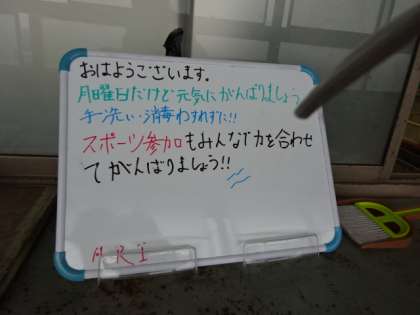 おはようございます。
月曜日だけど元気にがんばりましょう
手洗い・消毒わすれずに!!
スポーツ参加もみんなで力を合わせ
てがんばりましょう!!
ARI